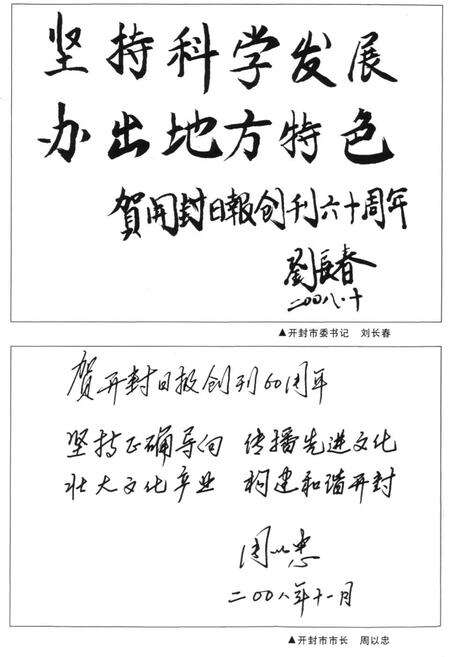 坚持科学发展
办出地方特色
賀開封日報创刊六十周年
劉長春
二〇〇八·十
▲开封市委书记 刘长春
贺开封日报创刊60周年
坚持正确导向 传播先进文化
壮大文化产业 构建和谐开封
周以忠
二〇〇八年十一月
▲开封市市长 周以忠